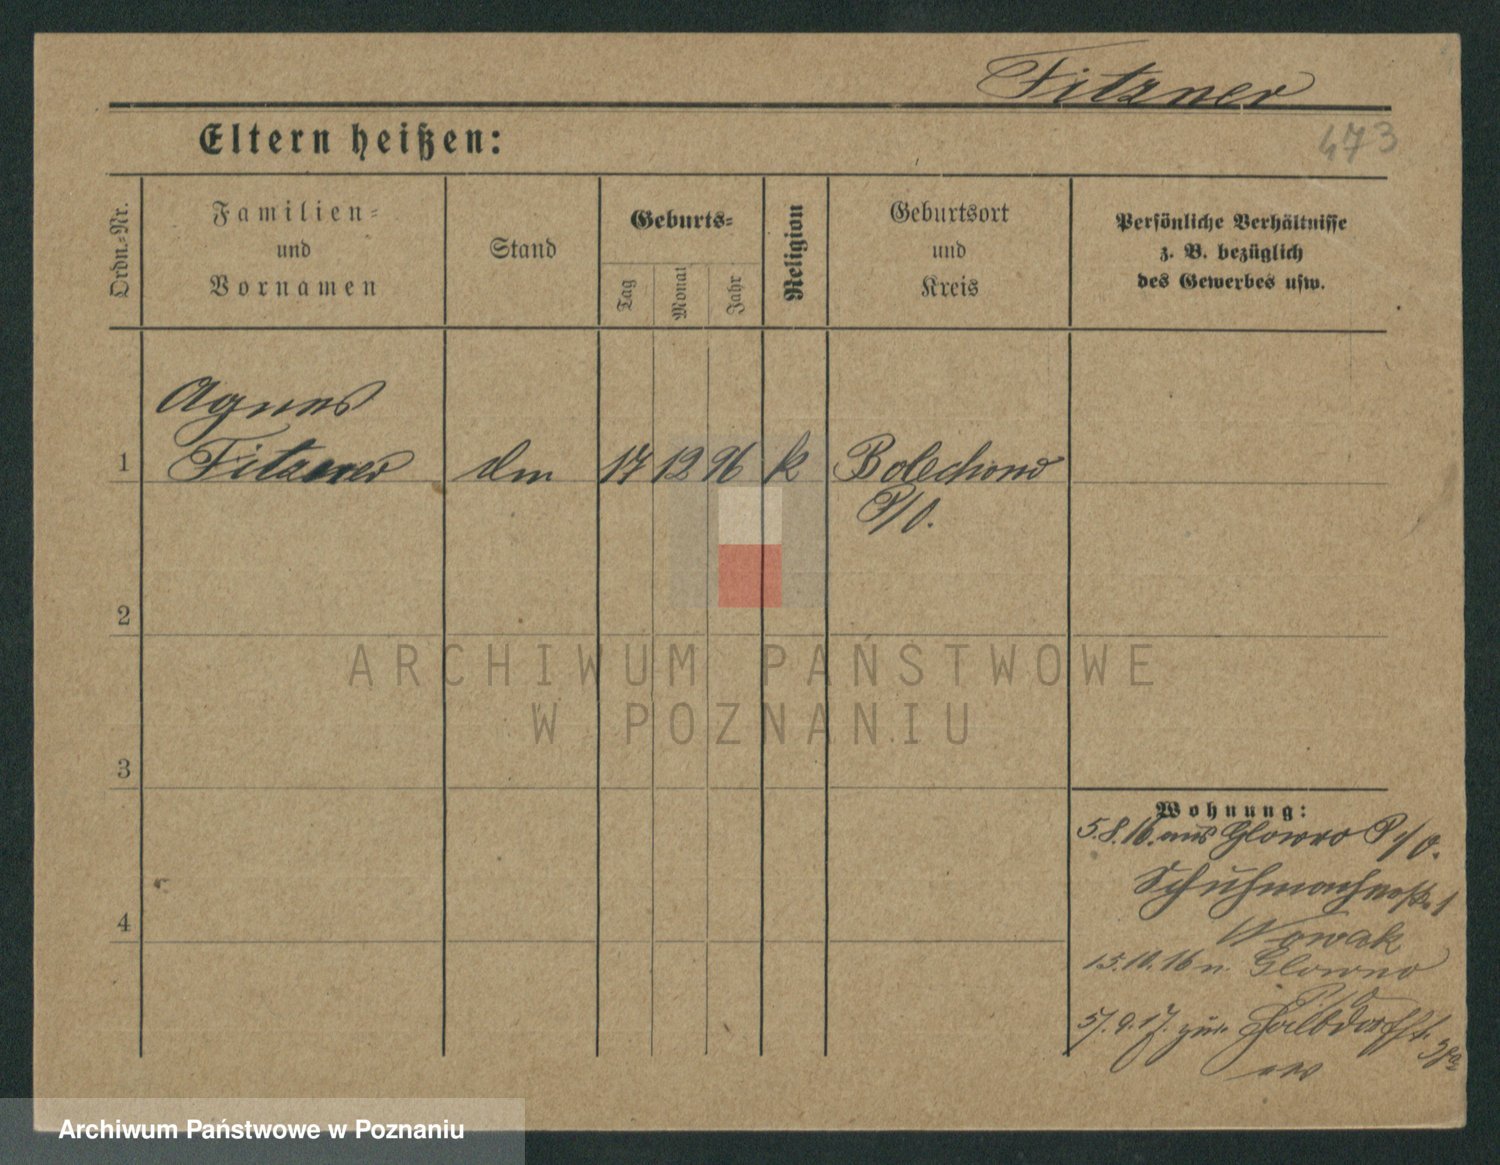 Fitzner
473
Eltern heißen:
Ordn.-Nr.
Familien-
und
Vornamen
Stand
Geburts-
Tag
Monat
Jahr
Religion
Geburtsort
und
Kreis
Persönliche Verhältnisse
z. B. bezüglich
des Gewerbes usw.
Agnes
1 Fitzner dm 17 12 96 k Bolechowo
P/O.
2
ARCHIWUM PAŃSTWOWE
W POZNANIU
3
Wohnung:
5.8.16. aus Glowno P/O.
Schuhmacherstr. 1
4
Nowak
15.10.16 n. Glowno
P/O
zur Halbdorfstr.
Archiwum Państwowe w Poznaniu